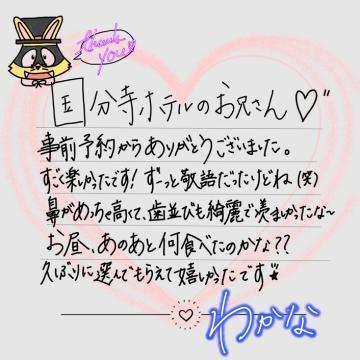 thank you♡
国分寺ホテルのお兄さん♡"
事前予約からありがとうございました。
すごく楽しかったです！ずっと敬語だったけどね(笑)
鼻がめっちゃ高くて、歯並びも綺麗で羨ましかったな〜
お昼、あのあと何食べたのかな？？
久しぶりに選んでもらえて嬉しかったです
わかな